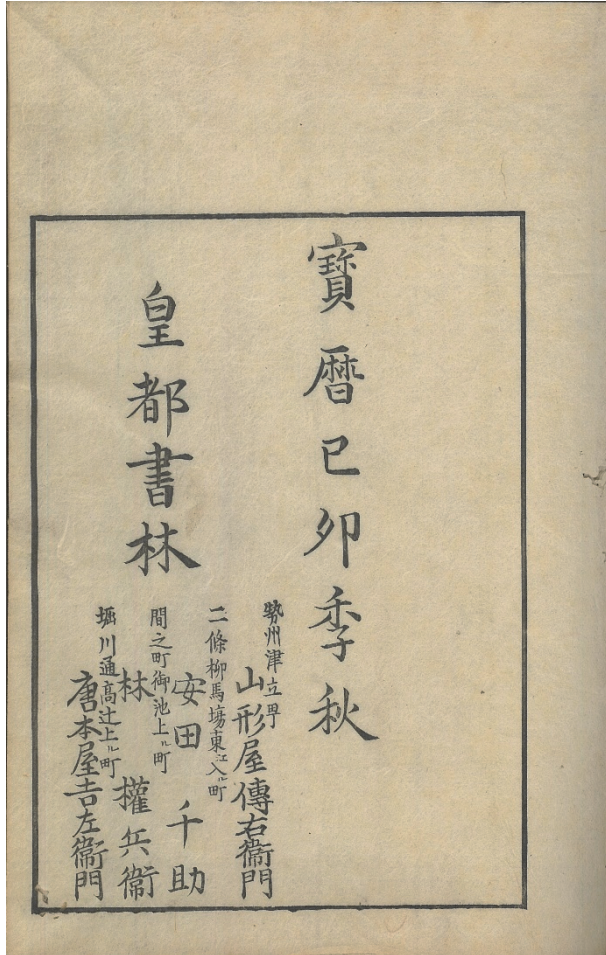 寶暦己卯季秋
皇都書林
勢州津立町
山形屋傳右衞門
二條柳馬塲東江入ル町
安田千助
間之町御池上ル町
林權兵衞
堀川通高辻上ル町
唐本屋吉左衞門